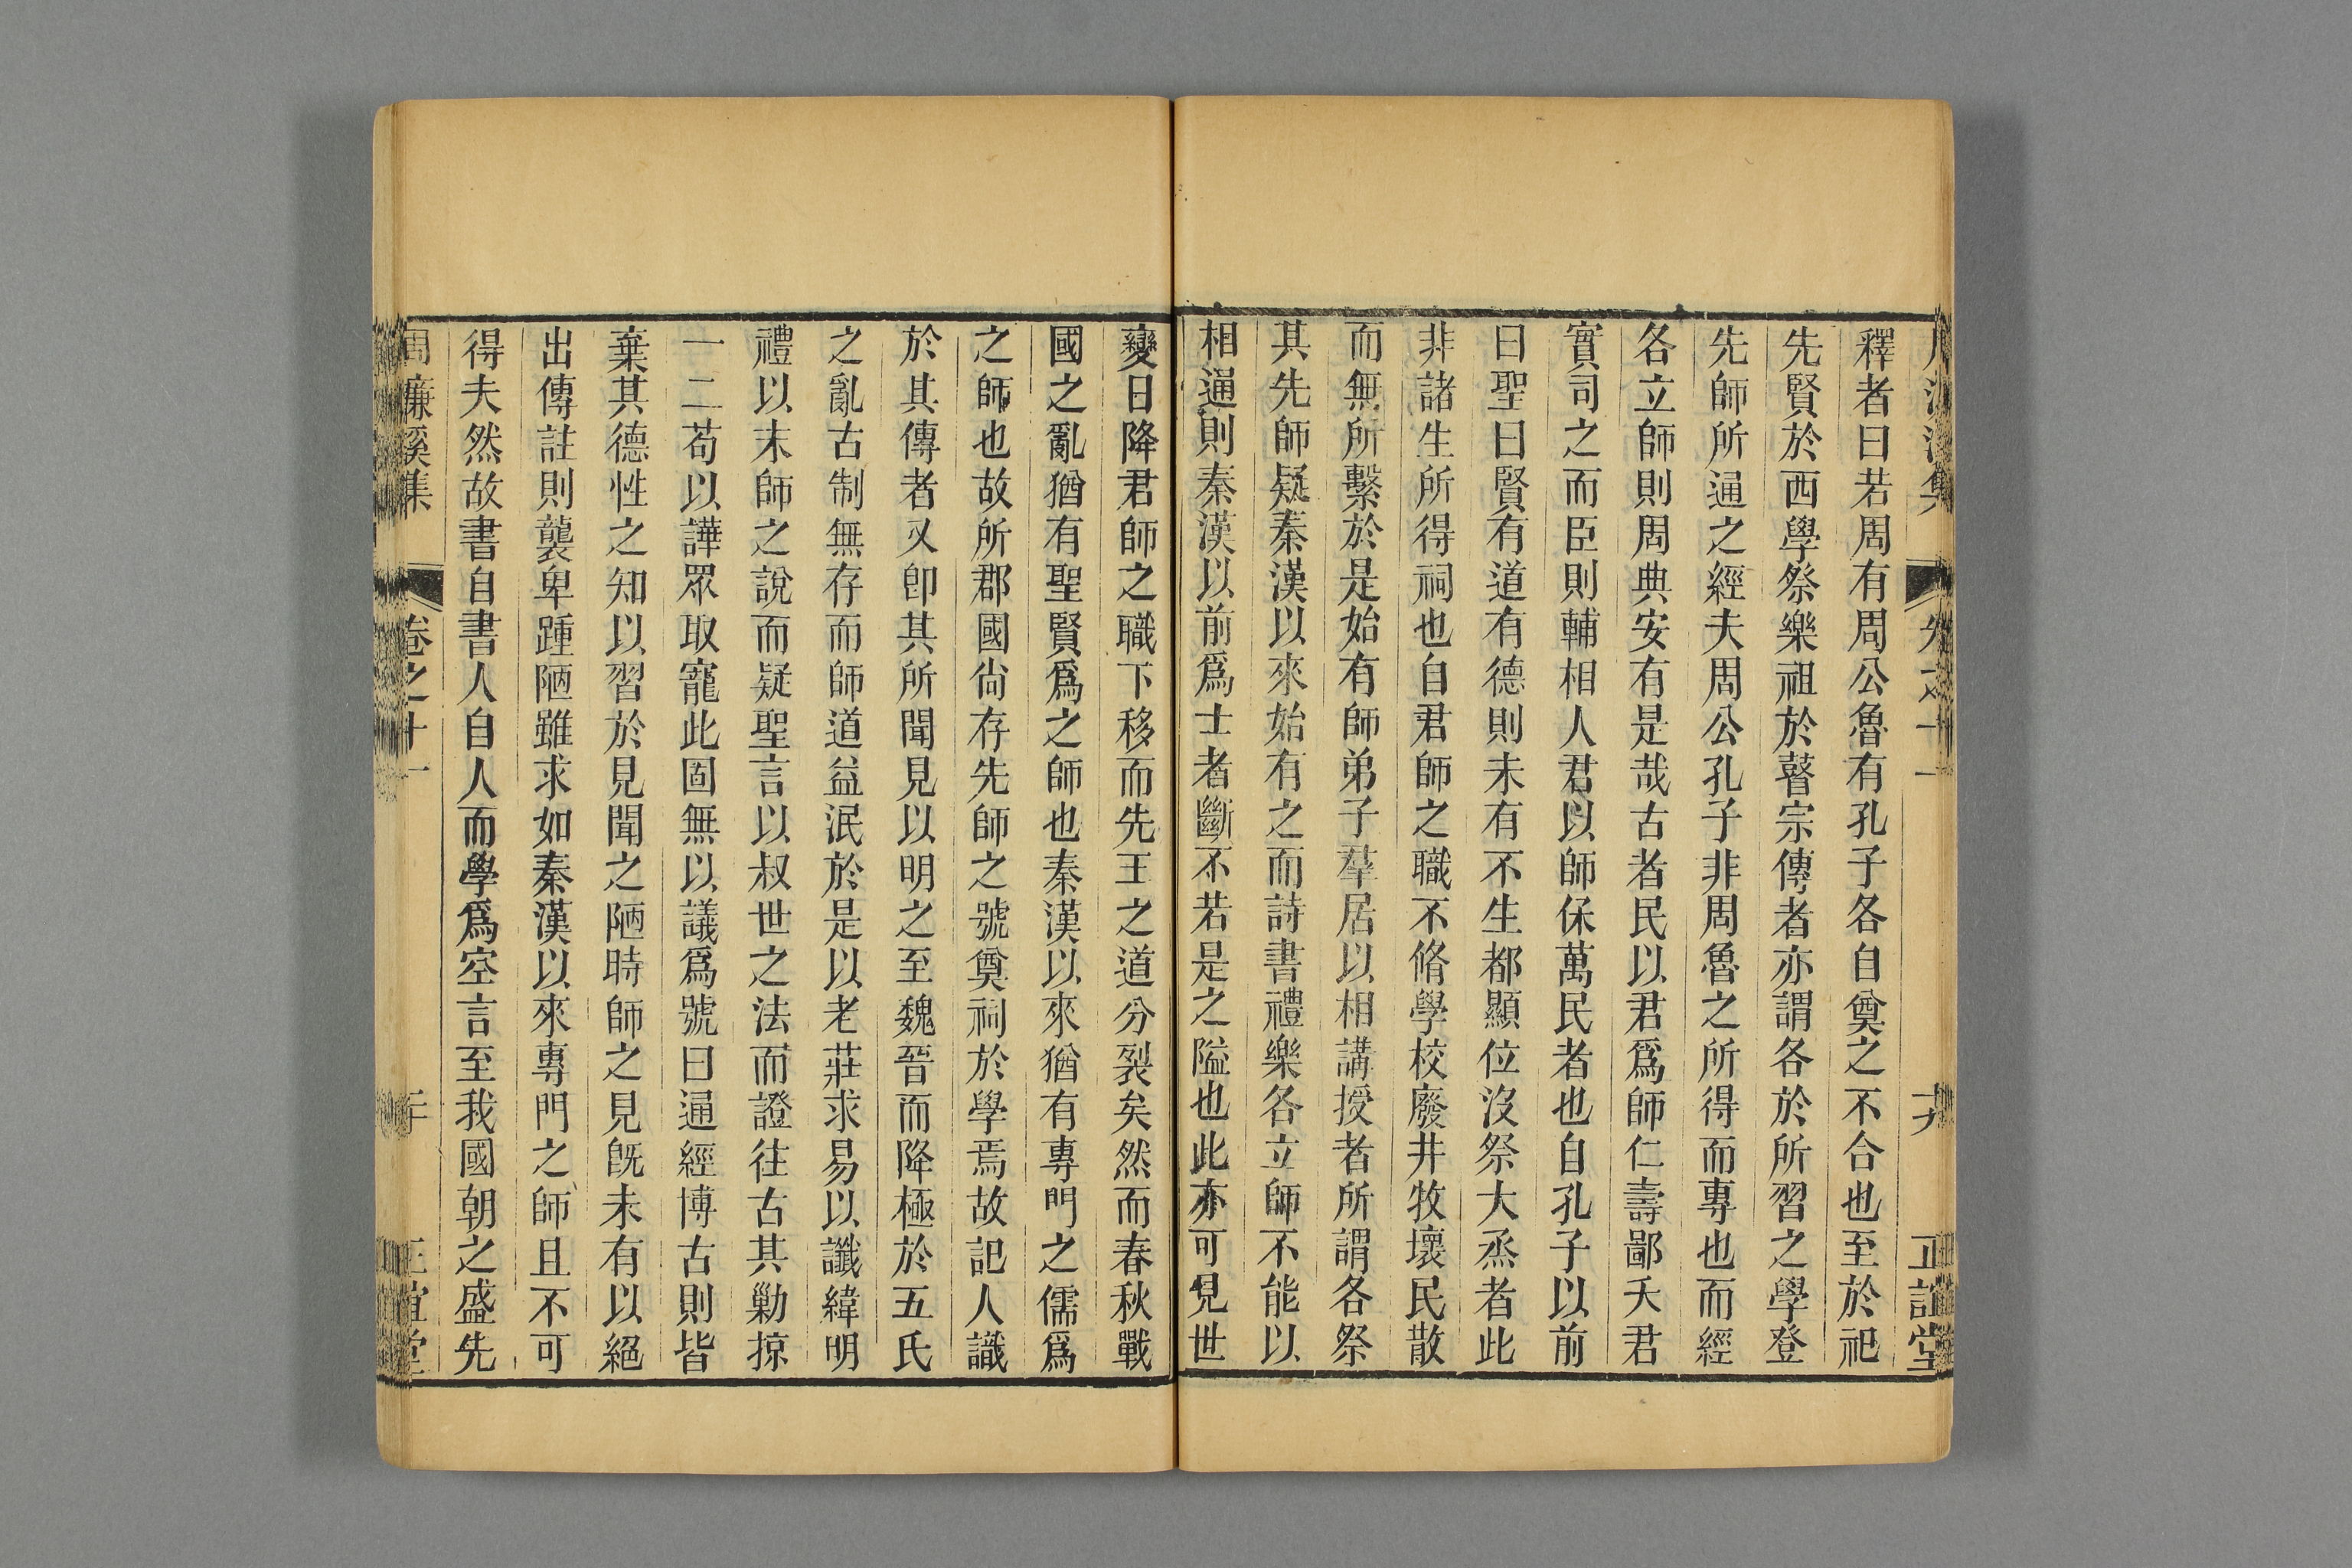 釋者曰若周有周公魯有孔子各自奠之不合也至於祀
先賢於西學祭樂祖於瞽宗傳者亦謂各於所習之學登
先師所通之經夫周公孔子非周魯之所得而專也而經
各立師則周典安有是哉古者民以君爲師仁壽鄙夭君
實司之而臣則輔相人君以師保萬民者也自孔子以前
曰聖曰賢有道有德則未有不生都顯位沒祭大烝者此
非諸生所得祠也自君師之職不脩學校廢井牧壞民散
而無所繫於是始有師弟子羣居以相講授者所謂各祭
其先師疑秦漢以來始有之而詩書禮樂各立師不能以
相通則秦漢以前爲士者斷不若是之隘也此亦可見世
變日降君師之職下移而先王之道分裂矣然而春秋戰
國之亂猶有聖賢爲之師也秦漢以來猶有專門之儒爲
之師也故所郡國尙存先師之號奠祠於學焉故記人識
於其傳者又卽其所聞見以明之至魏晉而降極於五氏
之亂古制無存而師道益泯於是以老莊求易以讖緯明
禮以末師之說而疑聖言以叔世之法而證往古其勦掠
一二苟以譁眾取寵此固無以議爲號曰通經博古則皆
棄其德性之知以習於見聞之陋時師之見旣未有以絕
出傳註則襲卑踵陋雖求如秦漢以來專門之師且不可
得夫然故書自書人自人而學爲空言至我國朝之盛先
周濂溪集 卷之十一 正誼堂